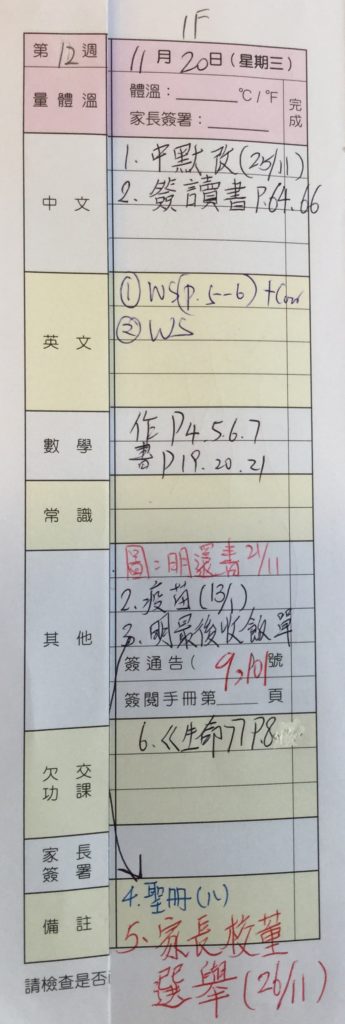 1F
第12週 11月20日(星期三)
量體溫 體溫:______°C/°F 完成
家長簽署:______
中文 1. 中默改(25/11)
2. 簽讀書P.64.66
英文 ① WS(P.5-6)+Corr
② WS
數學 作P4.5.6.7
書P19.20.21
常識
其他 圖:明還書21/11
2. 疫苗(13/1)
3. 明最後收飯單
簽通告(9,101號
簽閱手冊第___頁
欠交功課 6.《生命》P8
家長簽署
備註 4. 聖冊(八)
5. 家長校董
選舉(26/11)
請檢查是否